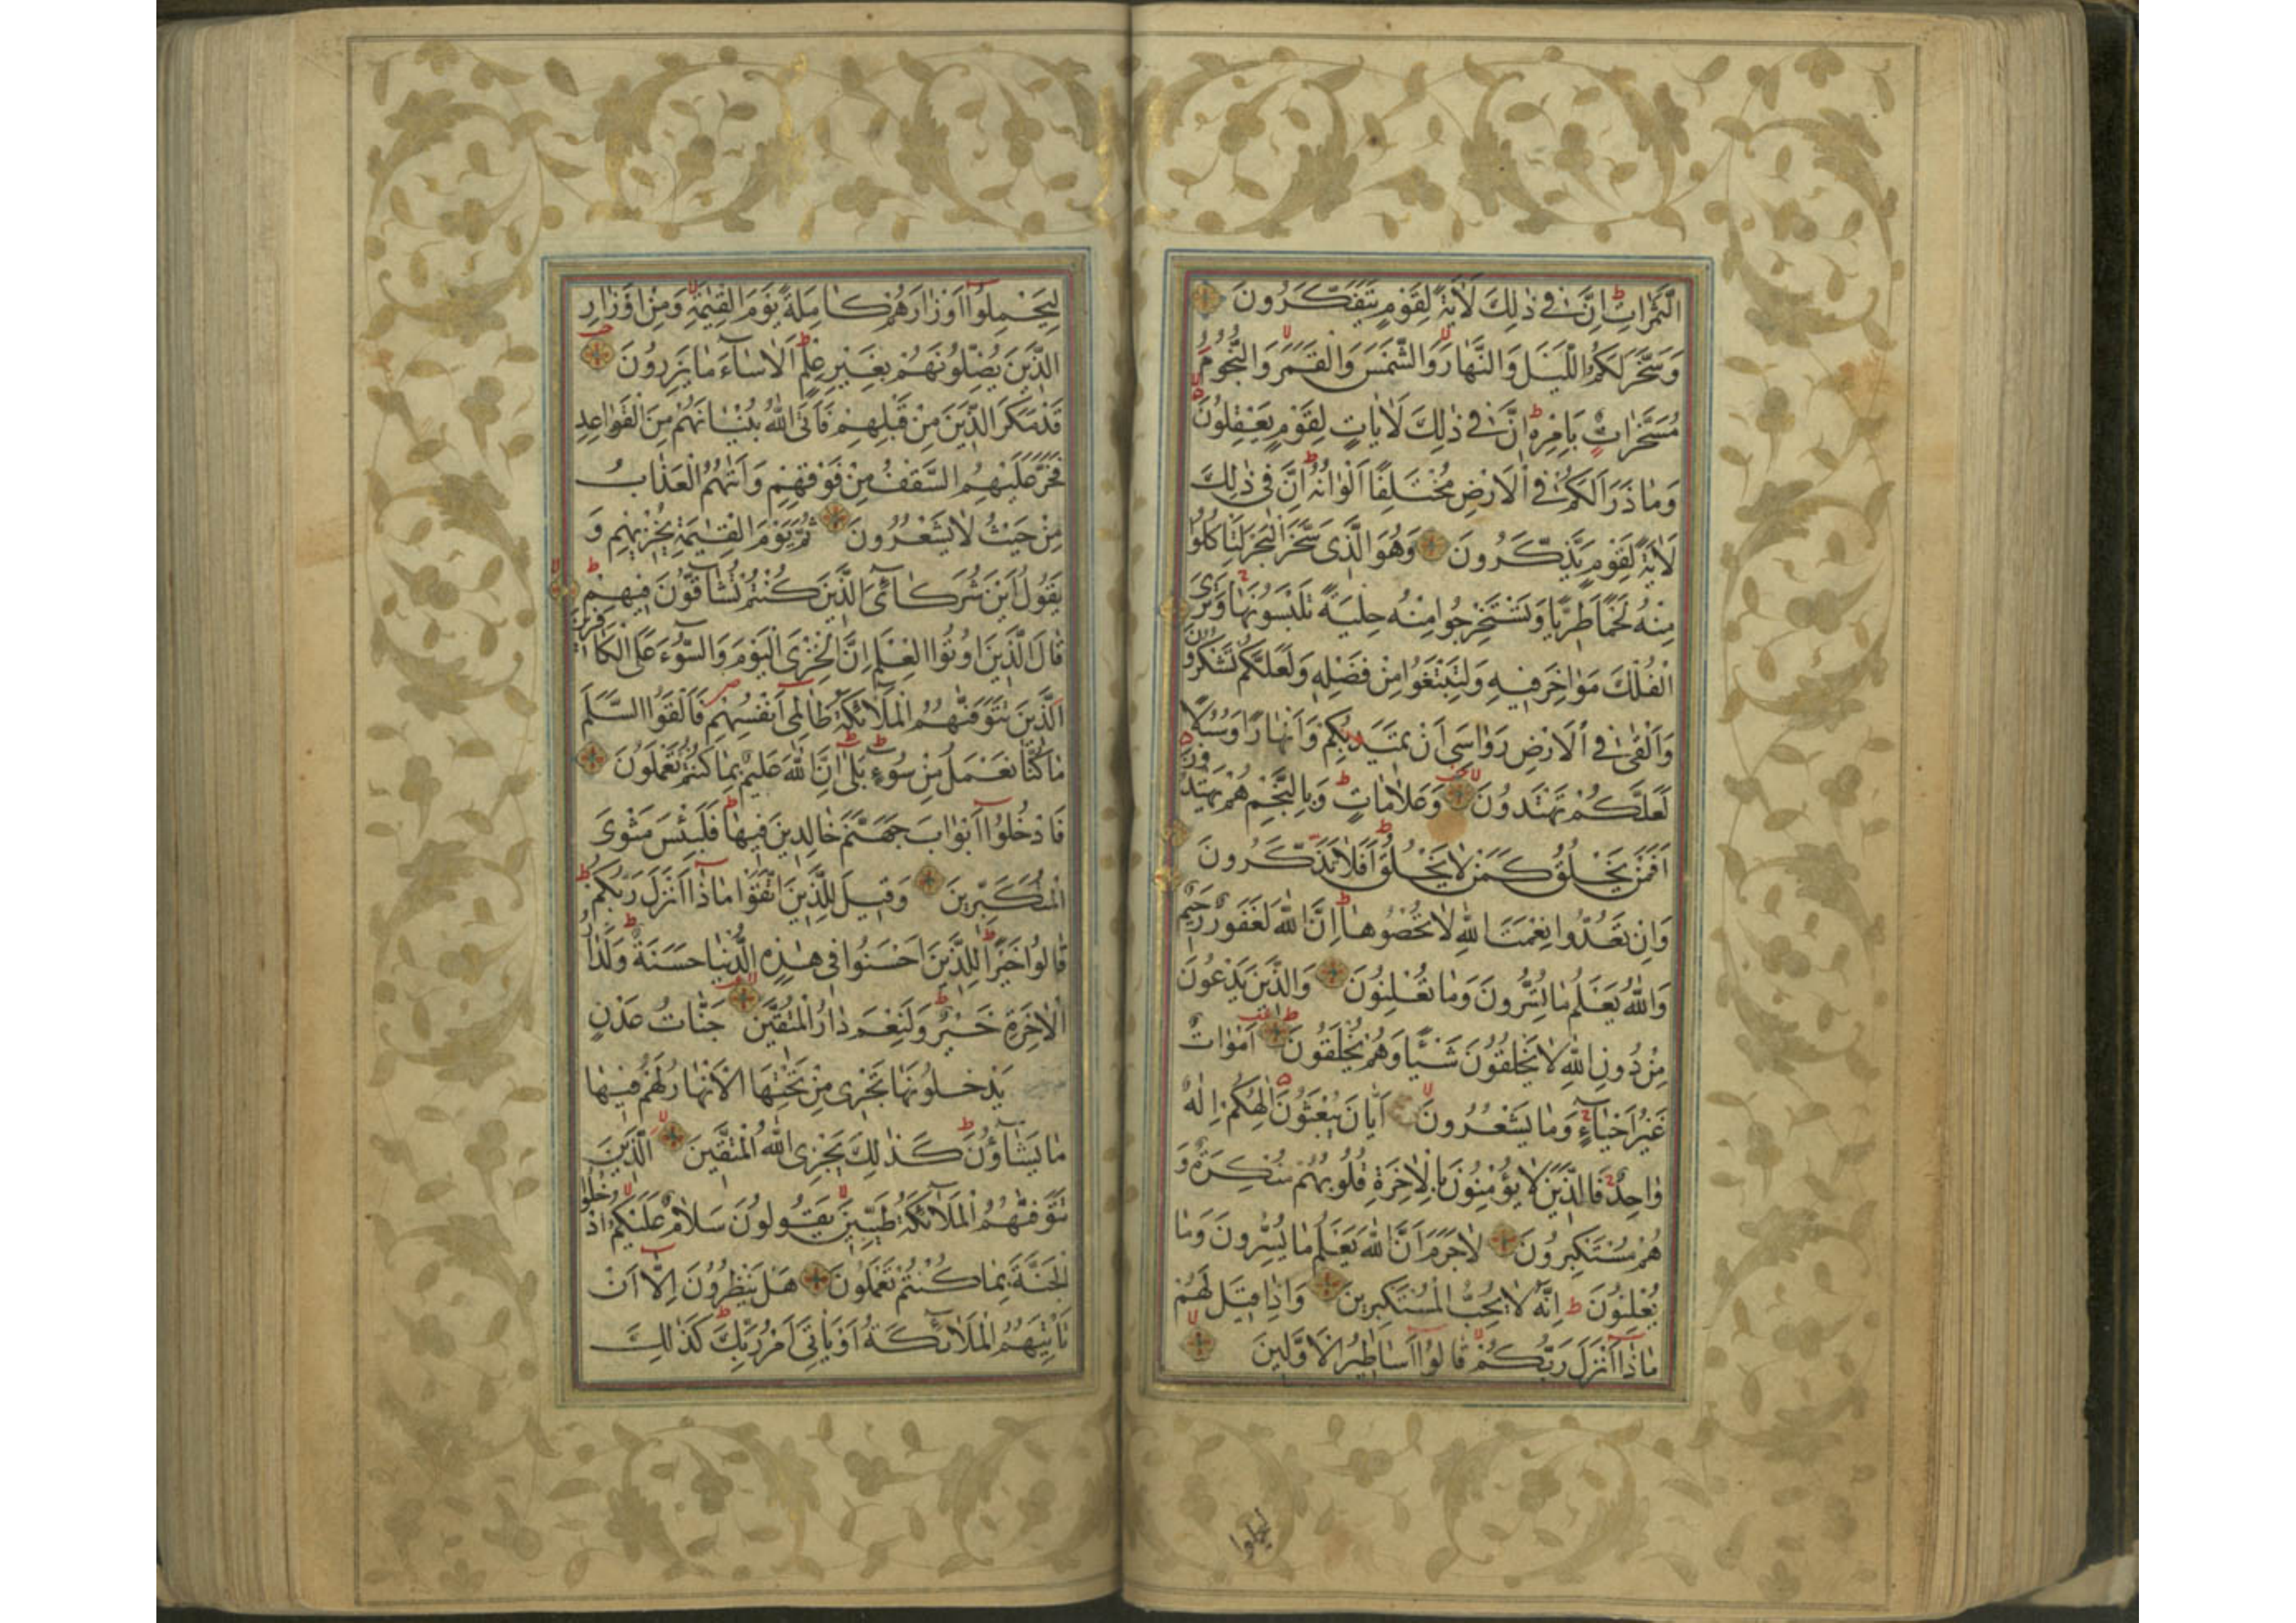 الثَّمَرَاتِ ط اِنَّ فٖى ذٰلِكَ لَاٰيَةً لِقَوْمٍ يَتَفَكَّرُونَ
وَسَخَّرَ لَكُمُ الَّيْلَ وَالنَّهَارَ لا وَالشَّمْسَ وَالْقَمَرَ لا وَالنُّجُومُ
مُسَخَّرَاتٌ بِاَمْرِهٖ ط اِنَّ فٖى ذٰلِكَ لَاٰيَاتٍ لِقَوْمٍ يَعْقِلُونَ لا
وَمَا ذَرَاَ لَكُمْ فِى الْاَرْضِ مُخْتَلِفًا اَلْوَانُهُ ط اِنَّ فٖى ذٰلِكَ
لَاٰيَةً لِقَوْمٍ يَذَّكَّرُونَ وَهُوَ الَّذٖى سَخَّرَ الْبَحْرَ لِتَاْكُلُوا
مِنْهُ لَحْمًا طَرِيًّا وَتَسْتَخْرِجُوا مِنْهُ حِلْيَةً تَلْبَسُونَهَا وَتَرَى
الْفُلْكَ مَوَاخِرَ فٖيهِ وَلِتَبْتَغُوا مِنْ فَضْلِهٖ وَلَعَلَّكُمْ تَشْكُرُونَ
وَاَلْقٰى فِى الْاَرْضِ رَوَاسِىَ اَنْ تَمٖيدَ بِكُمْ وَاَنْهَارًا وَسُبُلًا
لَعَلَّكُمْ تَهْتَدُونَ لا وَعَلَامَاتٍ ط وَبِالنَّجْمِ هُمْ يَهْتَدُونَ
اَفَمَنْ يَخْلُقُ كَمَنْ لَا يَخْلُقُ ط اَفَلَا تَذَكَّرُونَ
وَاِنْ تَعُدُّوا نِعْمَتَ اللّٰهِ لَا تُحْصُوهَا ط اِنَّ اللّٰهَ لَغَفُورٌ رَحٖيمٌ
وَاللّٰهُ يَعْلَمُ مَا تُسِرُّونَ وَمَا تُعْلِنُونَ وَالَّذٖينَ يَدْعُونَ
مِنْ دُونِ اللّٰهِ لَا يَخْلُقُونَ شَيْئًا وَهُمْ يُخْلَقُونَ ط اَمْوَاتٌ
غَيْرُ اَحْيَاءٍ وَمَا يَشْعُرُونَ لا اَيَّانَ يُبْعَثُونَ اِلٰهُكُمْ اِلٰهٌ
وَاحِدٌ فَالَّذٖينَ لَا يُؤْمِنُونَ بِالْاٰخِرَةِ قُلُوبُهُمْ مُنْكِرَةٌ وَ
هُمْ مُسْتَكْبِرُونَ لَا جَرَمَ اَنَّ اللّٰهَ يَعْلَمُ مَا يُسِرُّونَ وَمَا
يُعْلِنُونَ ط اِنَّهُ لَا يُحِبُّ الْمُسْتَكْبِرٖينَ وَاِذَا قٖيلَ لَهُمْ
مَاذَا اَنْزَلَ رَبُّكُمْ لا قَالُوا اَسَاطٖيرُ الْاَوَّلٖينَ لا
ليحملوا
لِيَحْمِلُوا اَوْزَارَهُمْ كَامِلَةً يَوْمَ الْقِيٰمَةِ لا وَمِنْ اَوْزَارِ
الَّذٖينَ يُضِلُّونَهُمْ بِغَيْرِ عِلْمٍ ط اَلَا سَاءَ مَا يَزِرُونَ
قَدْ مَكَرَ الَّذٖينَ مِنْ قَبْلِهِمْ فَاَتَى اللّٰهُ بُنْيَانَهُمْ مِنَ الْقَوَاعِدِ
فَخَرَّ عَلَيْهِمُ السَّقْفُ مِنْ فَوْقِهِمْ وَاَتٰيهُمُ الْعَذَابُ
مِنْ حَيْثُ لَا يَشْعُرُونَ ثُمَّ يَوْمَ الْقِيٰمَةِ يُخْزٖيهِمْ وَ
يَقُولُ اَيْنَ شُرَكَائِىَ الَّذٖينَ كُنْتُمْ تُشَاقُّونَ فٖيهِمْ ط
قَالَ الَّذٖينَ اُوتُوا الْعِلْمَ اِنَّ الْخِزْىَ الْيَوْمَ وَالسُّوءَ عَلَى الْكَافِرٖينَ لا
اَلَّذٖينَ تَتَوَفّٰيهُمُ الْمَلٰئِكَةُ ظَالِمٖى اَنْفُسِهِمْ ص فَاَلْقَوُا السَّلَمَ
مَا كُنَّا نَعْمَلُ مِنْ سُوءٍ ط بَلٰى اِنَّ اللّٰهَ عَلٖيمٌ بِمَا كُنْتُمْ تَعْمَلُونَ
فَادْخُلُوا اَبْوَابَ جَهَنَّمَ خَالِدٖينَ فٖيهَا ط فَلَبِئْسَ مَثْوَى
الْمُتَكَبِّرٖينَ وَقٖيلَ لِلَّذٖينَ اتَّقَوْا مَاذَا اَنْزَلَ رَبُّكُمْ ط
قَالُوا خَيْرًا ط لِلَّذٖينَ اَحْسَنُوا فٖى هٰذِهِ الدُّنْيَا حَسَنَةٌ ط وَلَدَارُ
الْاٰخِرَةِ خَيْرٌ ط وَلَنِعْمَ دَارُ الْمُتَّقٖينَ لا جَنَّاتُ عَدْنٍ
يَدْخُلُونَهَا تَجْرٖى مِنْ تَحْتِهَا الْاَنْهَارُ لَهُمْ فٖيهَا
مَا يَشَاؤُنَ ط كَذٰلِكَ يَجْزِى اللّٰهُ الْمُتَّقٖينَ لا اَلَّذٖينَ
تَتَوَفّٰيهُمُ الْمَلٰئِكَةُ طَيِّبٖينَ لا يَقُولُونَ سَلَامٌ عَلَيْكُمُ لا ادْخُلُوا
الْجَنَّةَ بِمَا كُنْتُمْ تَعْمَلُونَ هَلْ يَنْظُرُونَ اِلَّا اَنْ
تَاْتِيَهُمُ الْمَلٰئِكَةُ اَوْ يَاْتِىَ اَمْرُ رَبِّكَ ط كَذٰلِكَ